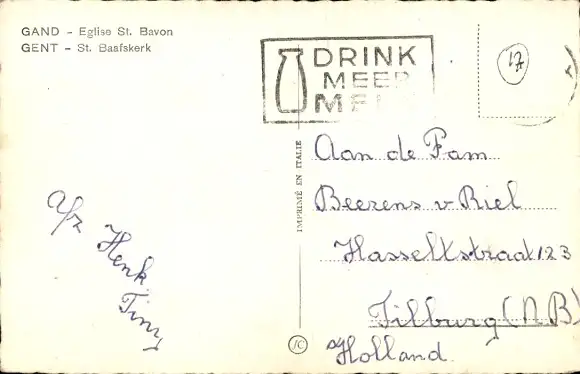 GAND - Eglise St. Bavon
GENT - St. Baafskerk
DRINK
MEER
MELK
17
IMPRIMÉ EN ITALIE
Aan de Fam
Beerens v Riel
Hasseltstraat 123
Tilburg (N B)
Holland
Afz Henk
Tiny